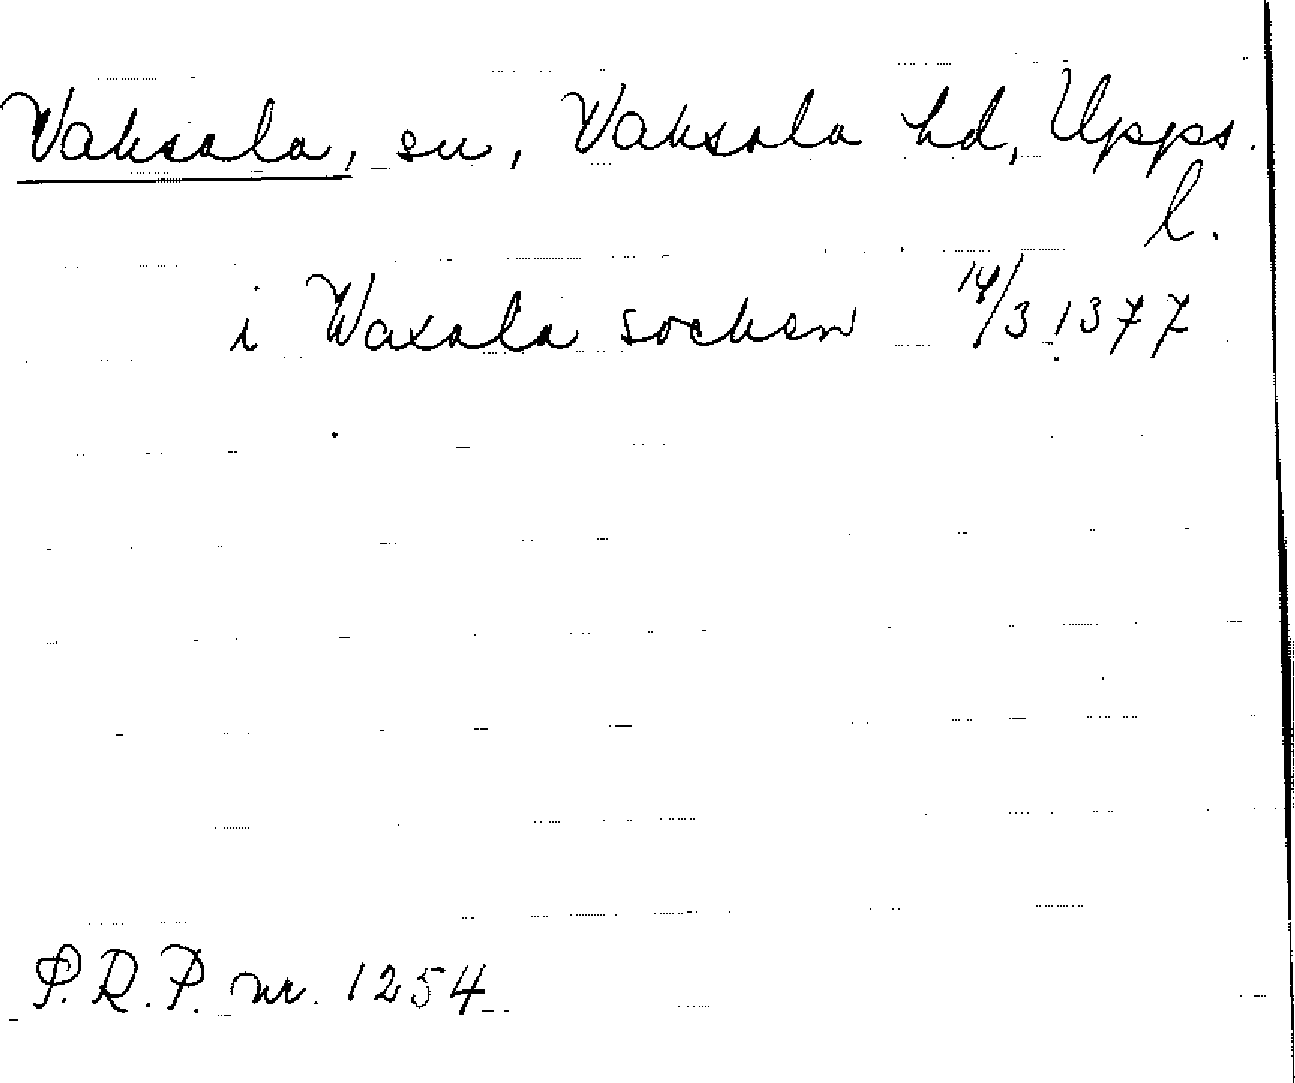 Vaksala, sn, Vaksala hd, Upps.
l.
i Waxala socken 14/3 1377
P.R.P. nr. 1254